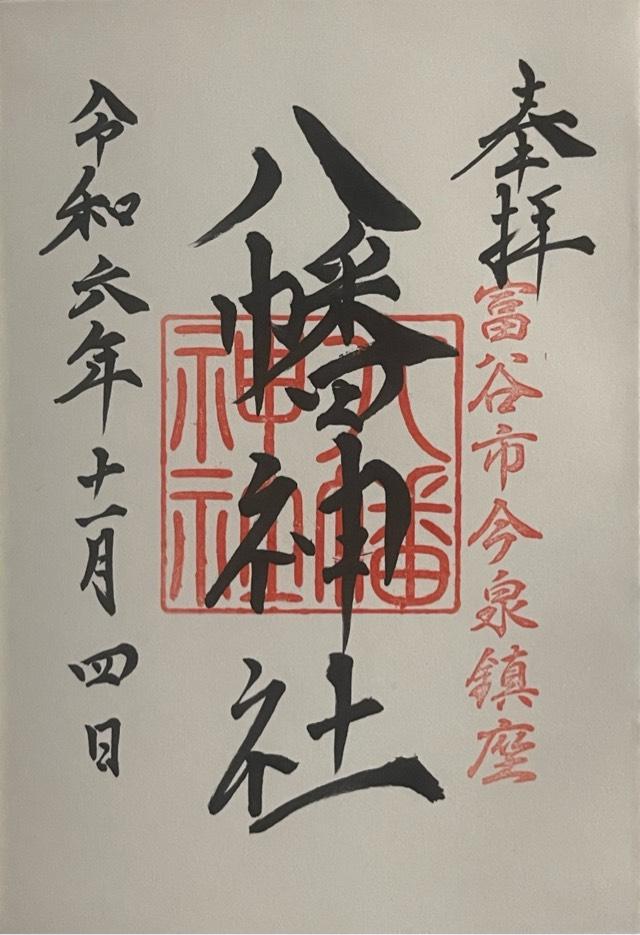 奉拝
富谷市今泉鎮座
八幡神社
八幡
神社
令和六年十一月四日